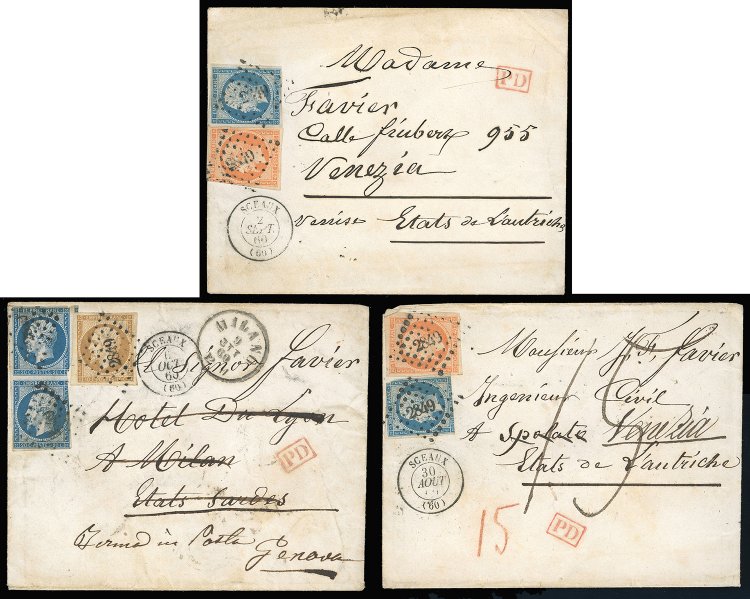 Madame
PD
Favier
Calle frubert 955
Venezia
Venise Etats de L'autriche
2849
SCEAUX
2
SEPT.
60
(60)
MILANO
9
60
SCEAUX
AOUT
60
(60)
Signor Favier
Hotel Du Lyon
A Milan
PD
Etats Sardes
Ferma in Posta
Genova
2849
2849
Monsieur J. F. Favier
Ingenieur Civil
A Spolato Venezia
Etats de L'autriche
SCEAUX
30
AOUT
(60)
15
15
PD